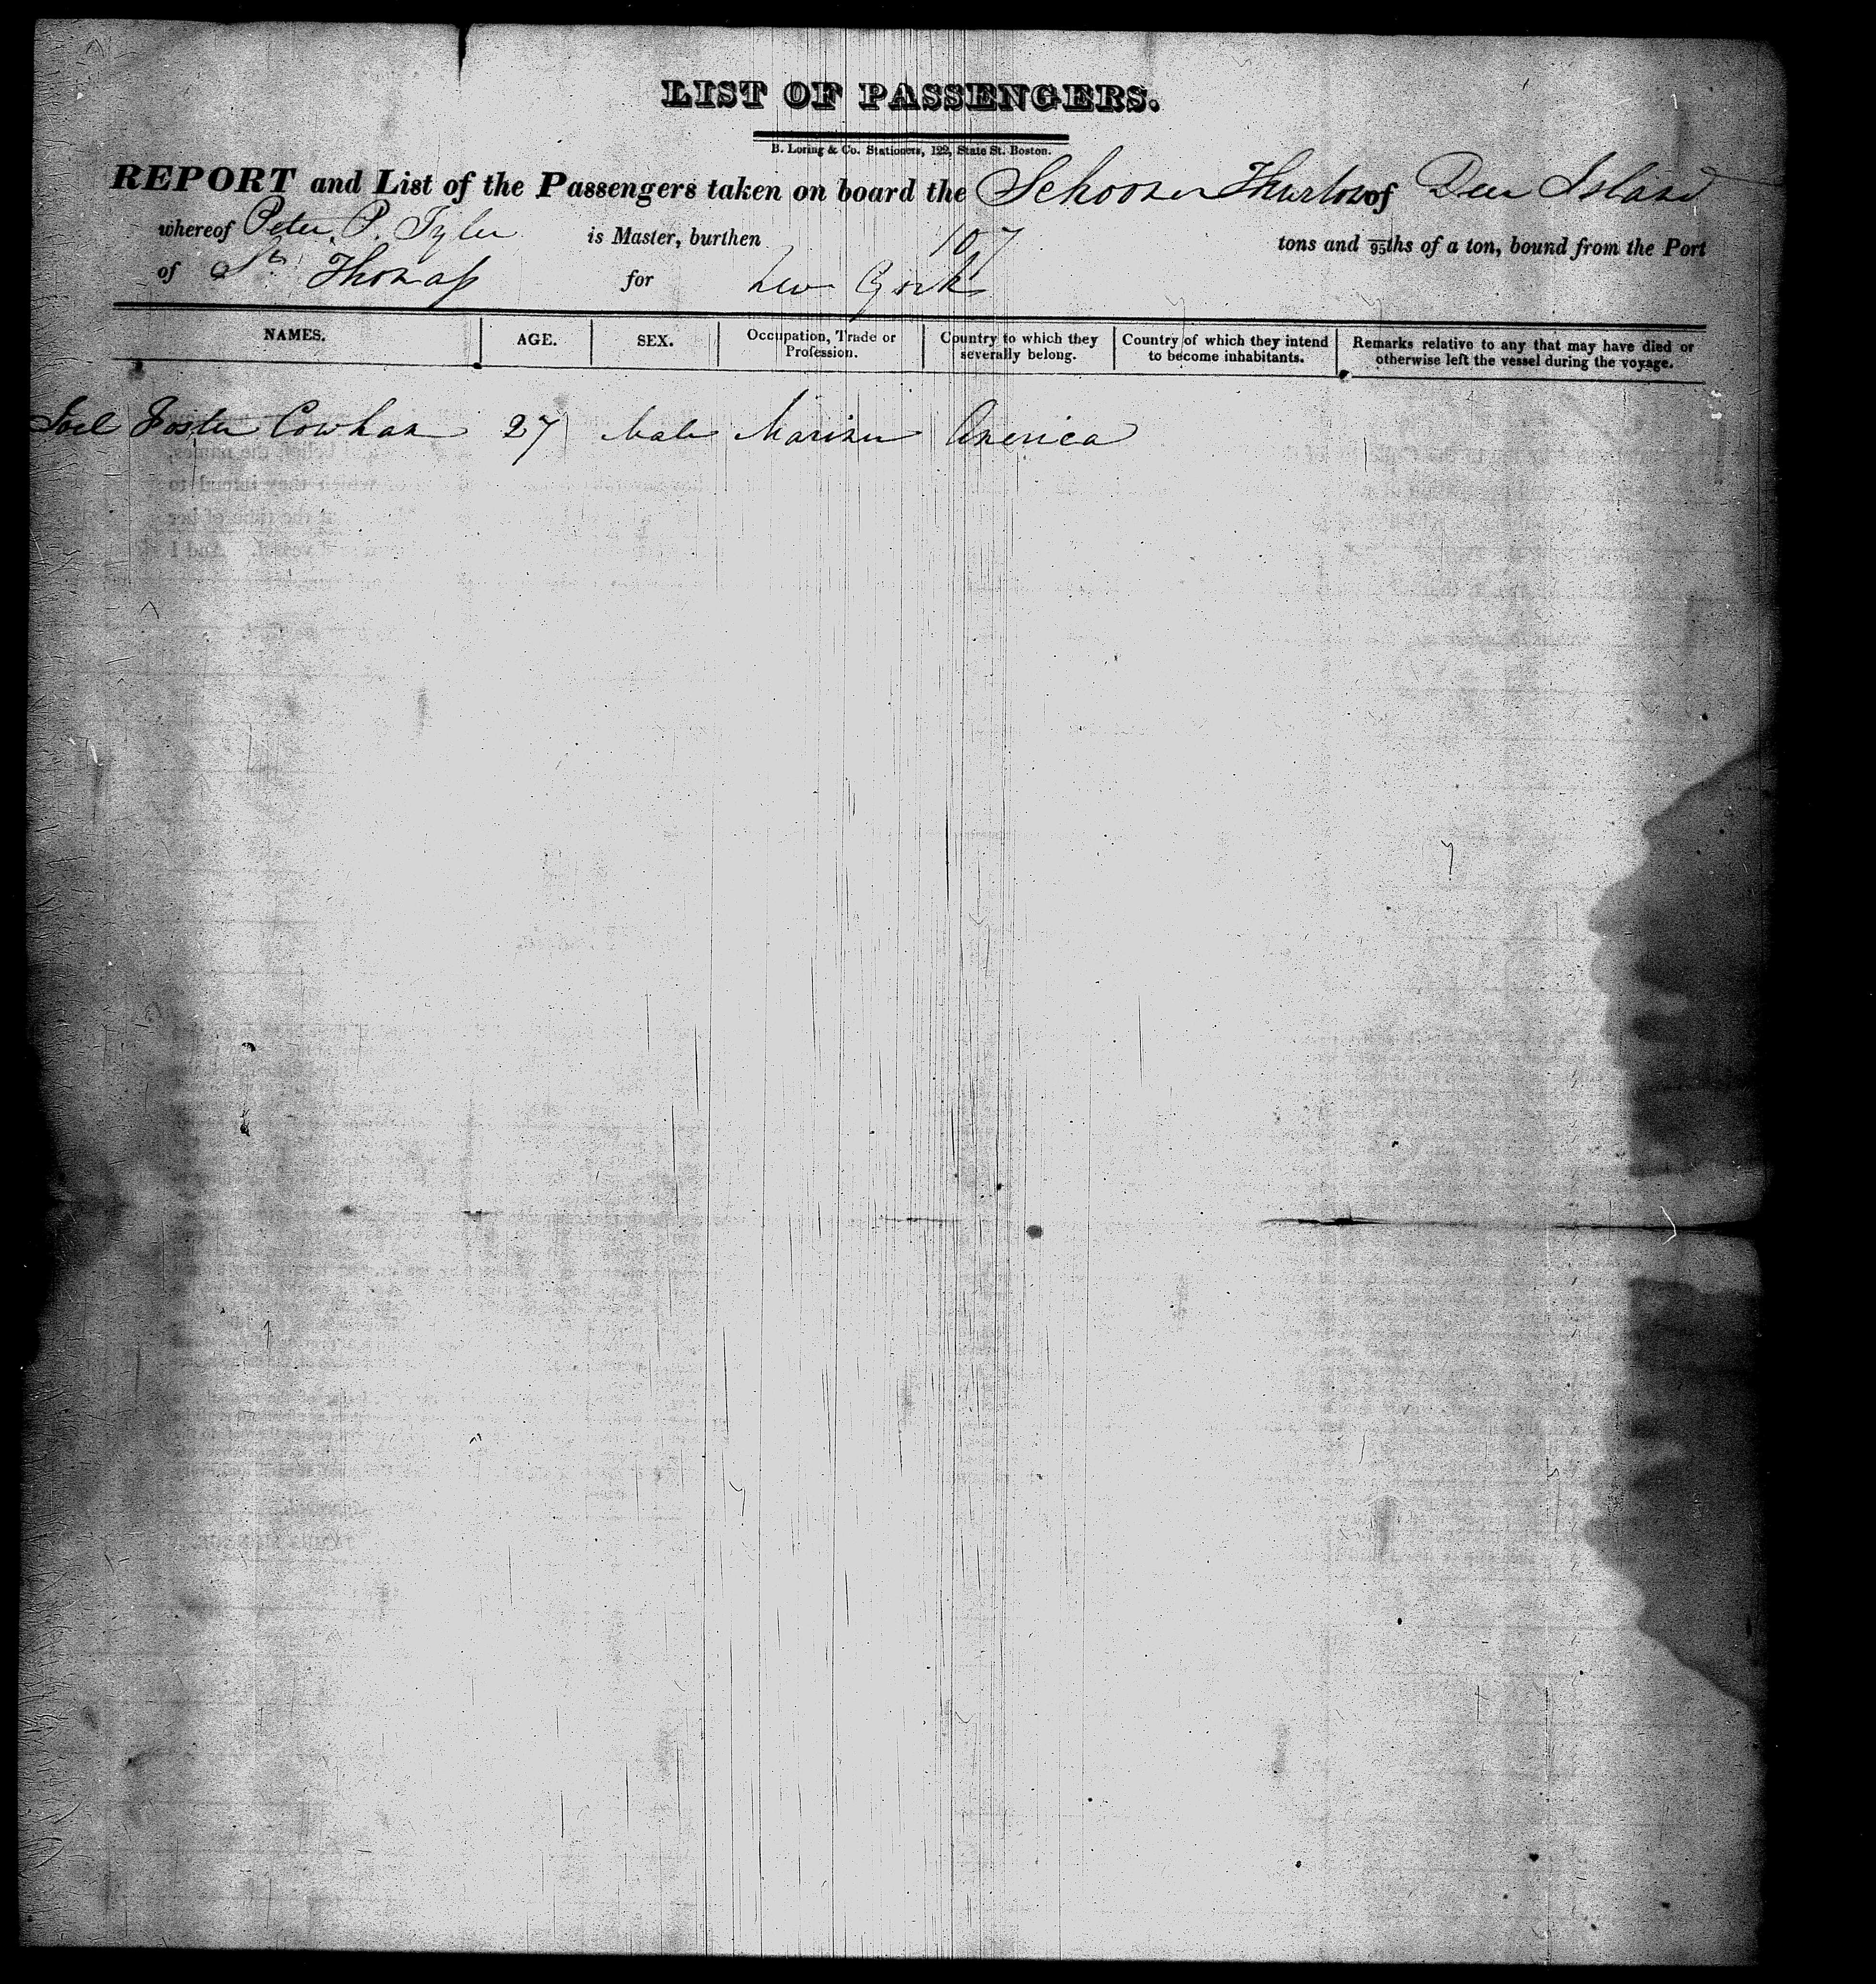 LIST OF PASSENGERS.
B. Loring & Co. Stationers, 122, State St. Boston.
REPORT and List of the Passengers taken on board the Schooner Thurlow of Deer Island
whereof Peter. P. Tyler is Master, burthen 107 tons and 95ths of a ton, bound from the Port
of St. Thomas for New York
NAMES. AGE. SEX. Occupation, Trade or Profession. Country to which they severally belong. Country of which they intend to become inhabitants. Remarks relative to any that may have died or otherwise left the vessel during the voyage.
Joel Foster Cowhan 27 Male Mariner America